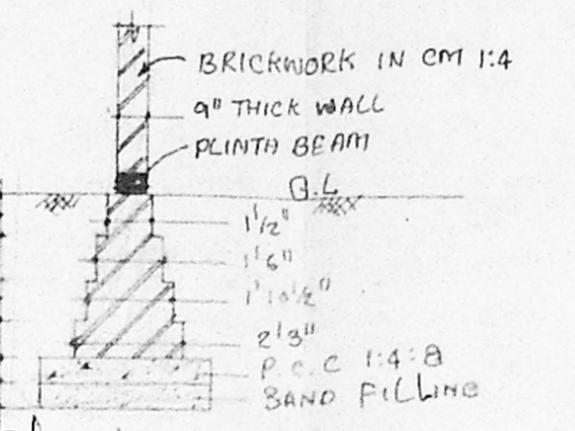 BRICKWORK IN CM 1:4
9" THICK WALL
PLINTH BEAM
G.L
1'1/2"
1'6"
1'10 1/2"
2'3"
P.C.C 1:4:8
SAND FILLING